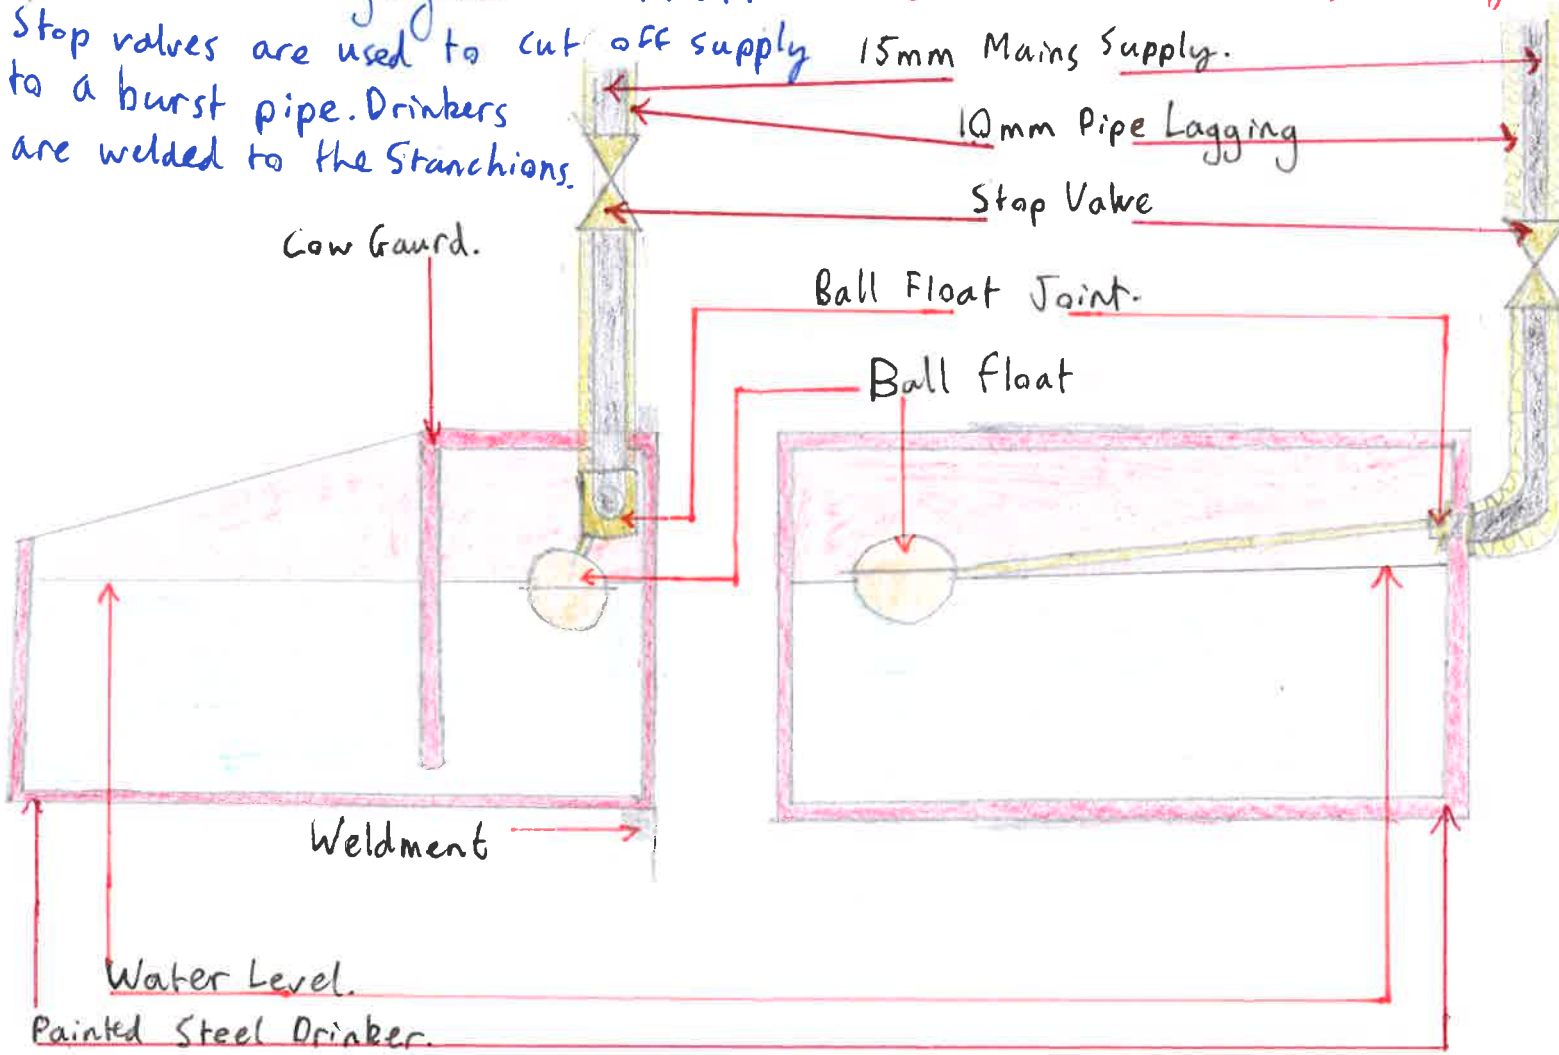 Stop valves are used to cut off supply
to a burst pipe. Drinkers
are welded to the Stanchions.
15mm Mains Supply.
10mm Pipe Lagging
Stop Valve
Cow Gaurd.
Ball Float Joint.
Ball float
Weldment
Water Level.
Painted Steel Drinker.